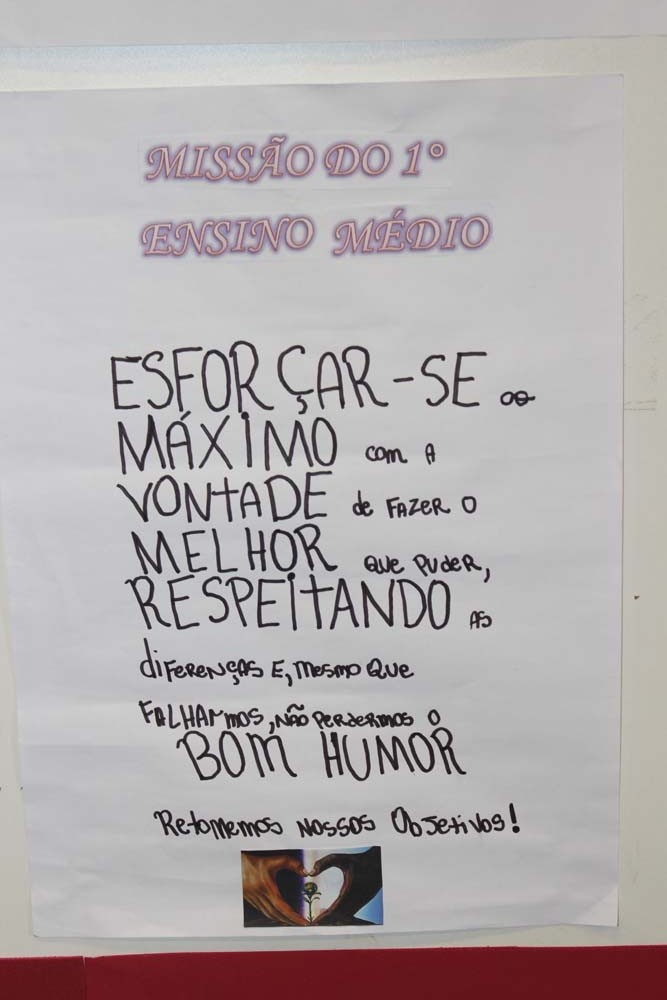 MISSÃO DO 1°
ENSINO MÉDIO
ESFORÇAR-SE ao
MÁXIMO com A
VONTADE de FAZER O
MELHOR que puder,
RESPEITANDO AS
diferenças E, mesmo que
FALHARMOS, NÃO PERDERMOS O
BOM HUMOR
Retomemos nossos Objetivos!